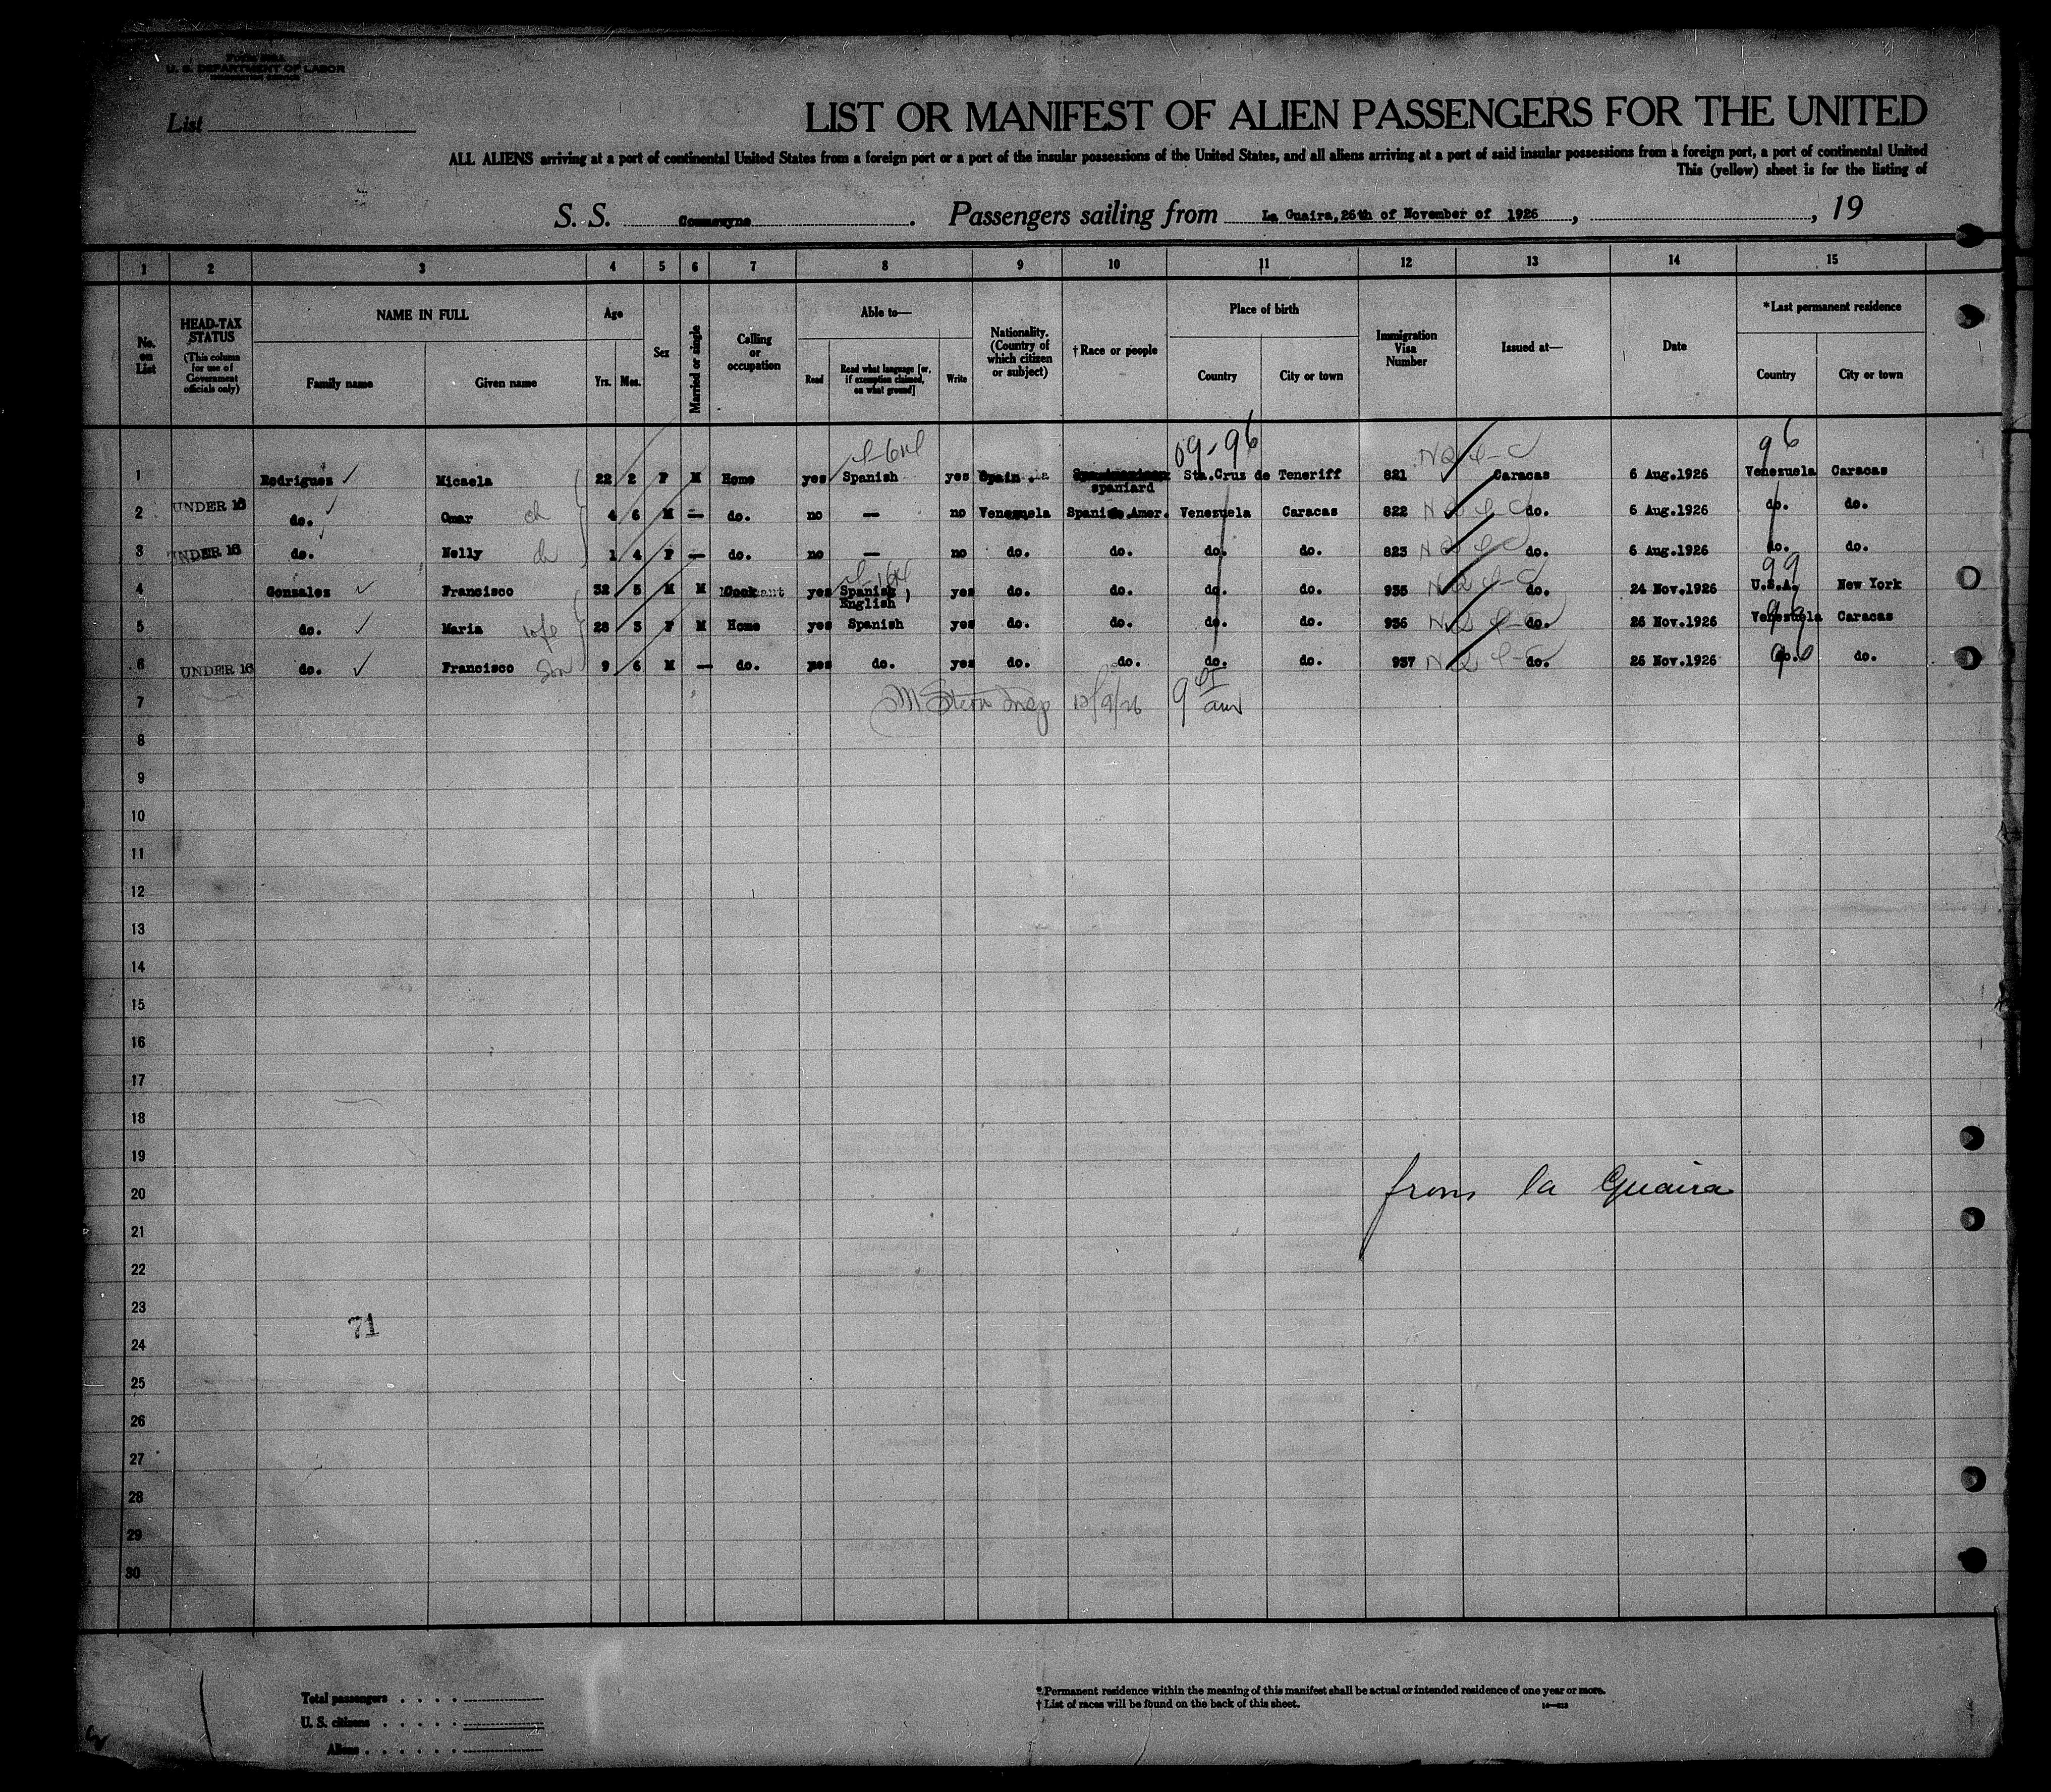 U. S. DEPARTMENT OF LABOR
List
LIST OR MANIFEST OF ALIEN PASSENGERS FOR THE UNITED
ALL ALIENS arriving at a port of continental United States from a foreign port or a port of the insular possessions of the United States, and all aliens arriving at a port of said insular possessions from a foreign port, a port of continental United
This (yellow) sheet is for the listing of
S. S. Commewyne. Passengers sailing from La Guaira, 26th of November of 1926, , 19
1 2 3 4 5 6 7 8 9 10 11 12 13 14 15
No. on List
HEAD-TAX STATUS (This column for use of Government officials only)
NAME IN FULL
Family name Given name
Age
Yrs. Mos.
Sex
Married or single
Calling or occupation
Able to—
Read Read what language [or, if exemption claimed, on what ground] Write
Nationality. (Country of which citizen or subject)
†Race or people
Place of birth
Country City or town
Immigration Visa Number
Issued at—
Date
*Last permanent residence
Country City or town
09-96 96
1 Rodriguez Micaela 22 2 F M Home yes Spanish yes Spain spaniard Sta.Cruz de Teneriff 821 Caracas 6 Aug.1926 Venezuela Caracas
2 UNDER 16 do. Omar ch 4 6 M — do. no — no Venezuela Spanish Amer. Venezuela Caracas 822 do. 6 Aug.1926 do. do.
3 UNDER 16 do. Nelly ch 1 4 F — do. no — no do. do. do. do. 823 do. 6 Aug.1926 do. do.
99
4 Gonzalez Francisco 32 5 M M Cook yes Spanish, English yes do. do. do. do. 935 do. 24 Nov.1926 U.S.A. New York
5 do. Maria wife 28 3 F M Home yes Spanish yes do. do. do. do. 936 do. 26 Nov.1926 Venezuela Caracas
6 UNDER 16 do. Francisco son 9 6 M — do. yes do. yes do. do. do. do. 937 do. 26 Nov.1926 do. do.
7 12/9/26 9 am
8
9
10
11
12
13
14
15
16
17
18
19
20 from la Guaira
21
22
23
71
24
25
26
27
28
29
30
Total passengers . . . .
U. S. citizens . . . . .
Aliens . . . . . .
* Permanent residence within the meaning of this manifest shall be actual or intended residence of one year or more.
† List of races will be found on the back of this sheet.